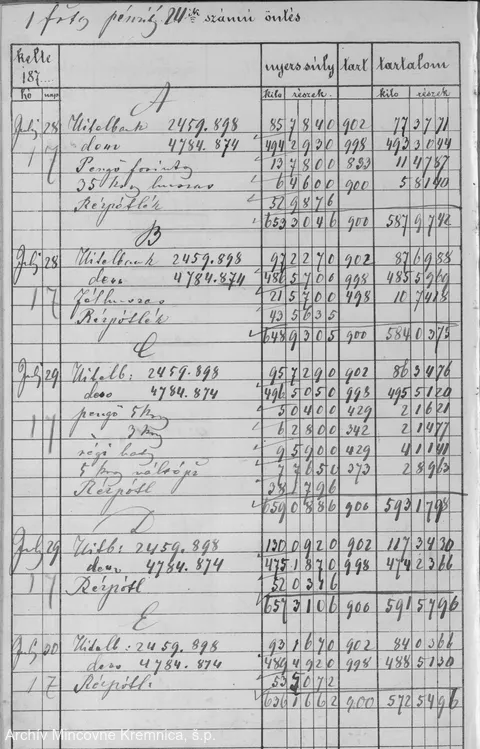 1 ftos pénzü 24ik számú öntés
kelte
187
hó nap
nyerssúly tart tartalom
kiló részek kiló részek
A
Julj 28 Hitelbank 2459.898 85 7840 902 77 3771
17 deto 4784.874 494 2930 998 493 3044
Pengő forintos 13 7800 833 11 4787
35 kros huszas 6 4600 900 5 8140
Rézpótlék 52 9876
653 3046 900 587 9742
B
Julj 28 Hitelbank 2459.898 97 2270 902 87 6988
deto 4784.874 486 5700 998 485 5969
17 21 5700 498 10 7418
Rézpótlék 43 5635
648 9305 900 584 0375
C
Julj 29 Hitelb: 2459.898 95 7290 902 86 3476
deto 4784.874 496 5050 998 495 5120
17 pengő 5 kros 5 0400 429 2 1621
3 kros 6 2800 342 2 1477
régi 9 5900 429 4 1141
5 kros váltó pz 7 7650 373 2 8963
Rézpótl 38 1796
659 0886 900 593 1798
D
Julj 29 Hitb: 2459.898 130 0920 902 117 3430
deto 4784.874 475 1870 998 474 2366
17 Rézpótl 52 0346
657 3106 900 591 5796
E
Julj 30 Hitelb: 2459.898 93 1670 902 84 0366
deto 4784.874 489 4920 998 488 5130
17 Rézpótl: 53 5072
636 1662 900 572 5496
Archív Mincovne Kremnica, š.p.